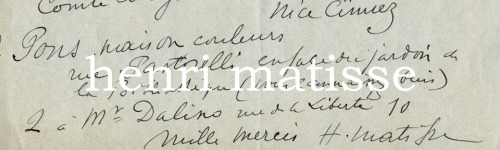 Comte
Nice Cimiez
Pons maison couleurs
rue Pastorelli en face du jardin de
la Bibliothèque (vous
2 à Mr Dalino rue de la Liberté 10
mille mercis H. matisse
henri matisse